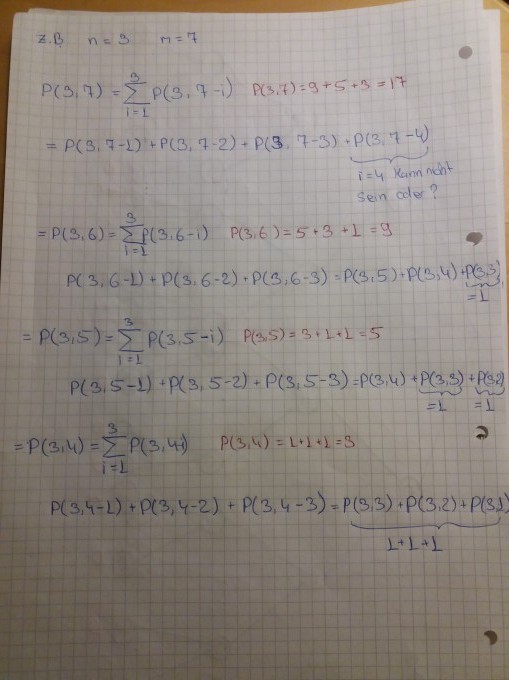 z.B n=3 m=7
P(3,7) = ∑_{i=1}^{3} P(3, 7-i) P(3,7) = 9+5+3 = 17
= P(3,7-1) + P(3,7-2) + P(3, 7-3) + P(3, 7-4)
i=4 kann nicht
sein oder?
= P(3,6) = ∑_{i=1}^{3} P(3,6-i) P(3,6) = 5+3+1 = 9
P(3,6-1) + P(3,6-2) + P(3,6-3) = P(3,5) + P(3,4) + P(3,3)
=1
= P(3,5) = ∑_{i=1}^{3} P(3,5-i) P(3,5) = 3+1+1 = 5
P(3,5-1) + P(3,5-2) + P(3,5-3) = P(3,4) + P(3,3) + P(3,2)
=1 =1
= P(3,4) = ∑_{i=1}^{3} P(3,4-i) P(3,4) = 1+1+1 = 3
P(3,4-1) + P(3,4-2) + P(3,4-3) = P(3,3) + P(3,2) + P(3,1)
1+1+1